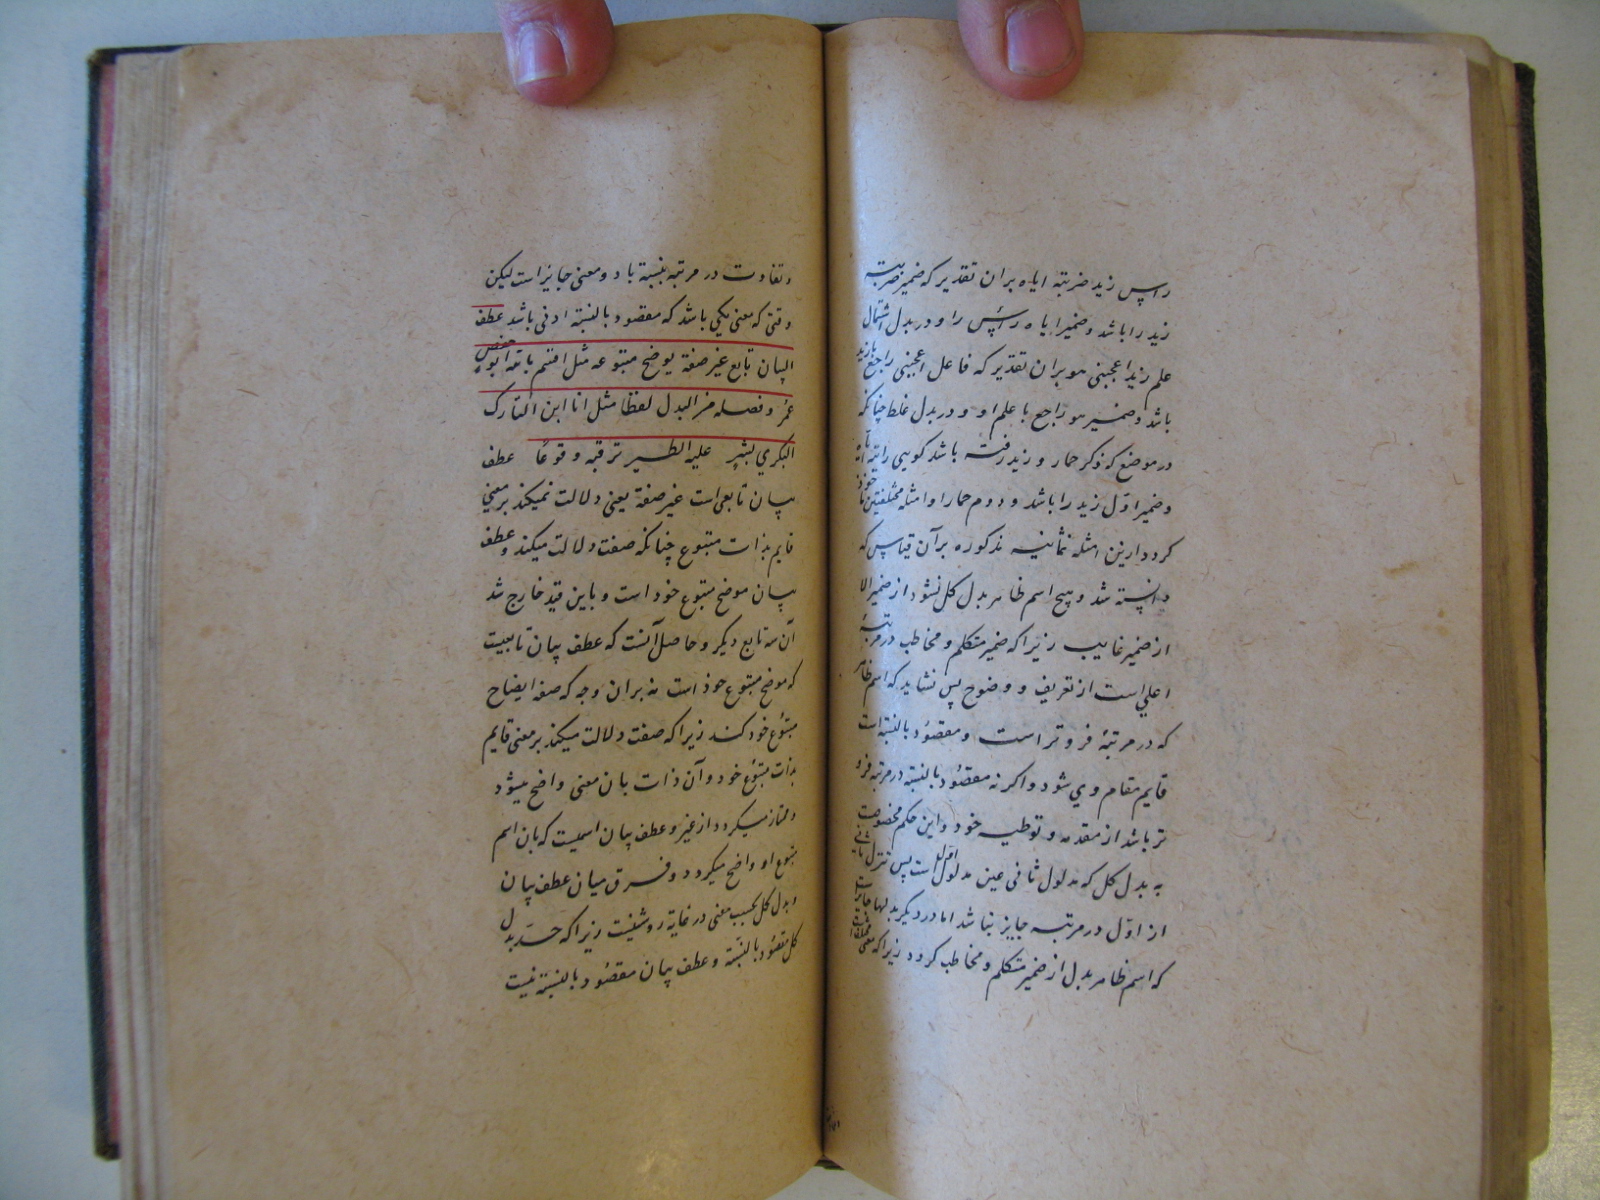 راس زید ضربته ایاه بران تقدیر که ضمیر ضربته
زید را باشد و ضمیر ایاه راس را و در بدل اشتمال
علم زید اعجبنی هو بران تقدیر که فاعل اعجبنی راجع بازید
باشد و ضمیر هو راجع با علم او و در بدل غلط چنانکه
در موضع که ذکر حمار و زید رفته باشد کویی رایته ایاه
و ضمیر اول زید را باشد و دوم حمار را و امثله مختلفتین
کرد دارین امثله ثمانیه مذکوره برآن قیاس که
دانسته شد و هیچ اسم ظاهر بدل کل نشود از ضمیر الا
از ضمیر غایب زیرا که ضمیر متکلم و مخاطب در مرتبهٔ
اعلی است از تعریف و وضوح پس نشاید که اسم ظاهر
که در مرتبهٔ فروتر است و مقصود بالنسبة است
قایم مقام وی شود و اکرنه مقصود بالنسبة در مرتبه فرو
تر باشد از مقدمه و توطیه خود و این حکم مخصوصست
به بدل کل که مدلول ثانی عین مدلول اول است پس تنزل ثانی
از اول در مرتبه جایز نباشد اما در دیکر بدلها جایز است
که اسم ظاهر بدل از ضمیر متکلم و مخاطب کردد زیرا که معنی مختلف
و تفاوت در مرتبه بنسبة با دو معنی جایز است لیکن
وقتی که معنی یکی باشد که مقصود بالنسبة ادنی باشد عطف
البیان تابع غیر صفة یوضح متبوعه مثل اقسم بالله ابو حفص
عمر و فصله من البدل لفظا مثل انا ابن التارک
البکری بشر علیه الطیر ترقبه وقوعاً عطف
بیان تابعی است غیر صفة یعنی دلالت نمیکند بر معنی
قایم بذات متبوع چنانکه صفت دلالت میکند و عطف
بیان موضح متبوع خود است و باین قید خارج شد
آن سه تابع دیکر و حاصل آنست که عطف بیان تابعیت
که موضح متبوع خود است نه بران وجه که صفة ایضاح
متبوع خود کند زیرا که صفت دلالت میکند بر معنی قایم
بذات متبوع خود و آن ذات بان معنی واضح میشود
و ممتاز میکردد از غیر و عطف بیان اسمیت که بان اسم
متبوع او واضح میکردد و فرق میان عطف بیان
و بدل کل بحسب معنی در غایة روشنیت زیرا که حد بدل
کل مقصود بالنسبة و عطف بیان مقصود بالنسبة نیست